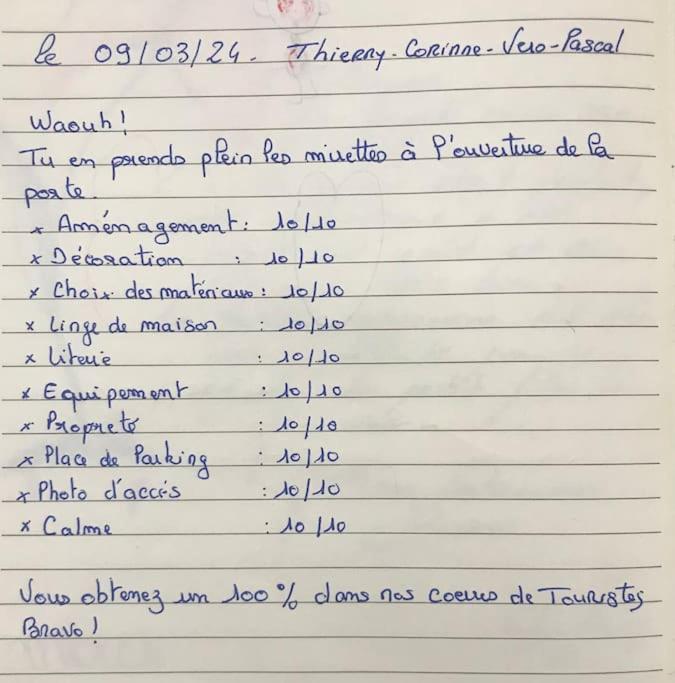 le 09/03/24. Thierry-Corinne-Vero-Pascal
Waouh!
Tu en prends plein les mirettes à l'ouverture de la
porte.
x Aménagement : 10/10
x Décoration : 10/10
x Choix des matériaux : 10/10
x Linge de maison : 10/10
x Literie : 10/10
x Equipement : 10/10
x Propreté : 10/10
x Place de Parking : 10/10
x Photo d'accès : 10/10
x Calme : 10/10
Vous obtenez un 100 % dans nos coeurs de Touristes
Bravo!